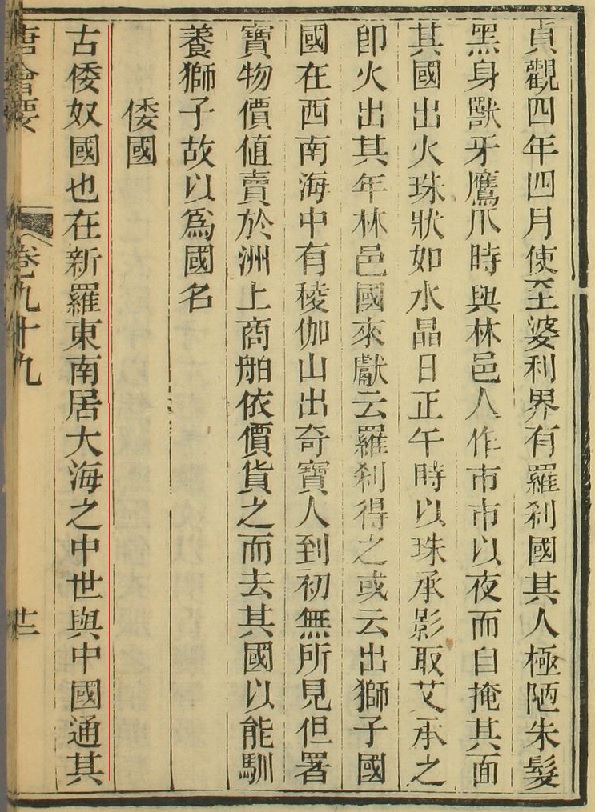 貞觀四年四月使至婆利界有羅刹國其人極陋朱髮
黑身獸牙鷹爪時與林邑人作市市以夜而自掩其面
其國出火珠狀如水晶日正午時以珠承影取艾承之
卽火出其年林邑國來獻云羅刹得之或云出獅子國
國在西南海中有稜伽山出奇寶人到初無所見但署
寶物價值賣於洲上商舶依價貨之而去其國以能馴
養獅子故以爲國名
倭國
古倭奴國也在新羅東南居大海之中世與中國通其
唐會要 卷九十九 廿二